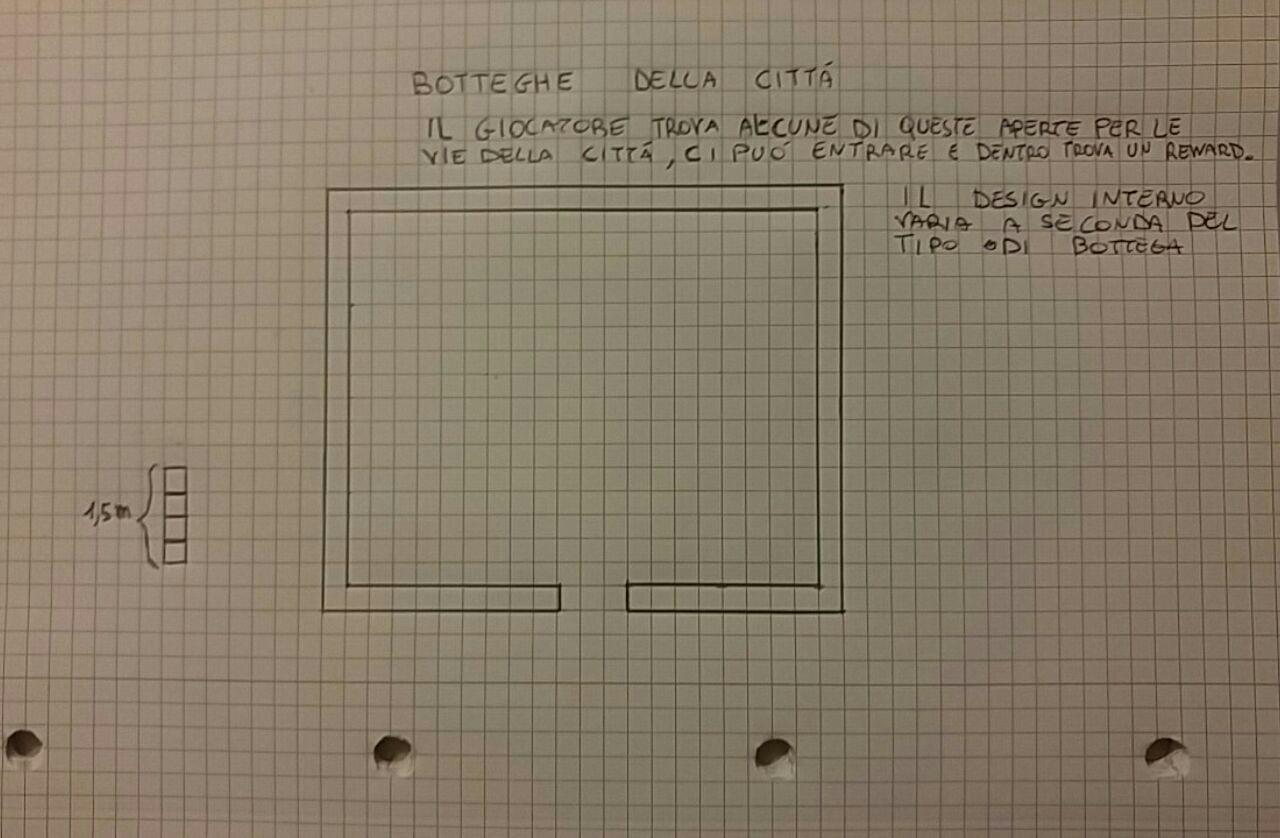 BOTTEGHE DELLA CITTÁ
IL GIOCATORE TROVA ALCUNE DI QUESTE APERTE PER LE
VIE DELLA CITTÁ, CI PUÓ ENTRARE E DENTRO TROVA UN REWARD.
IL DESIGN INTERNO
VARIA A SECONDA DEL
TIPO DI BOTTEGA
1,5m